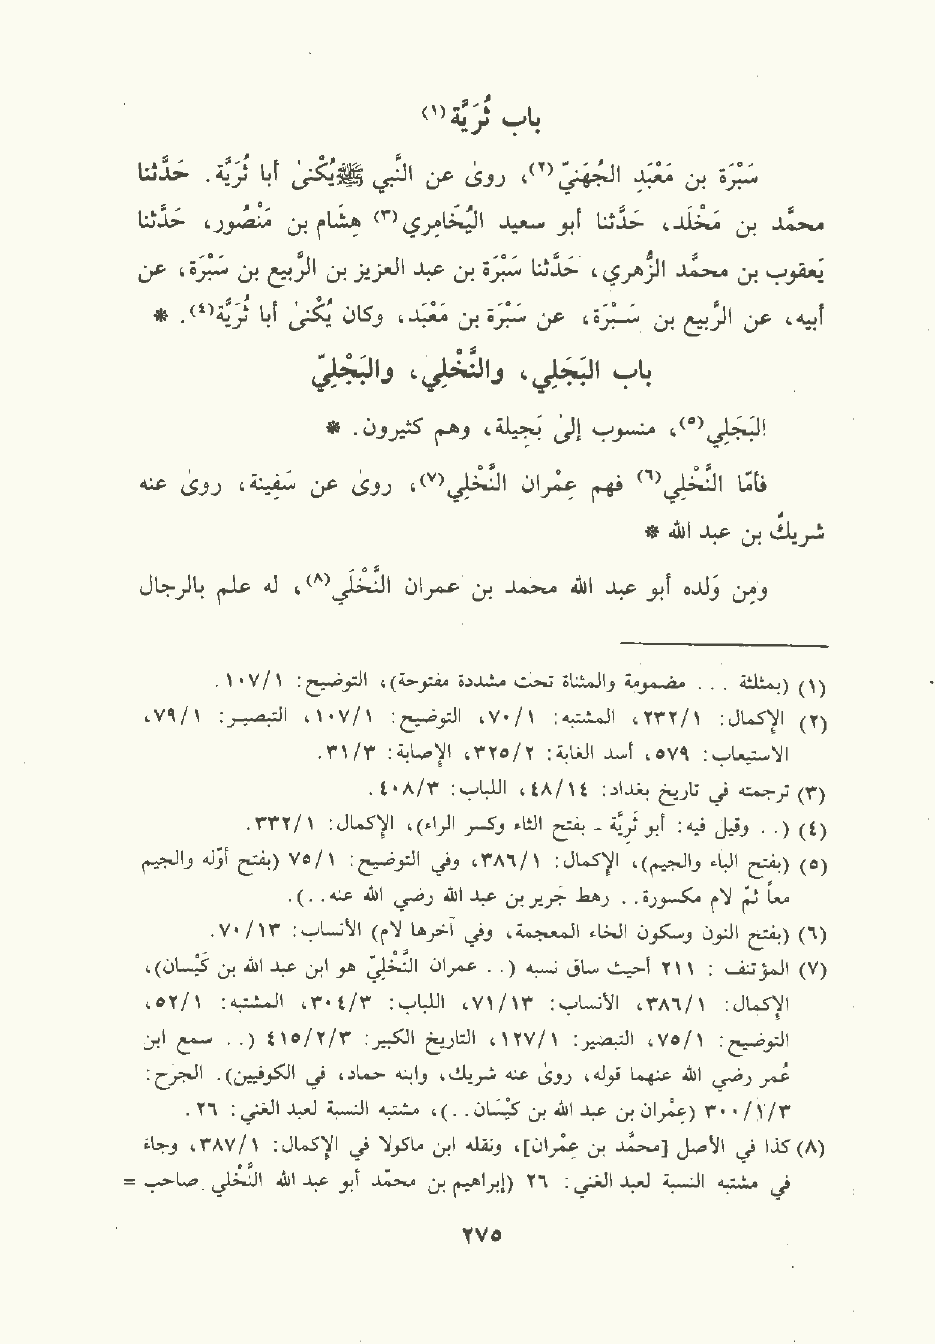 باب ثُرَيَّة(١)
سَبْرَة بن مَعْبَد الجُهَنِيّ(٢)، روىٰ عن النَّبي ﷺ يُكْنىٰ أبا ثُرَيَّة. حَدَّثنا
محمَّد بن مَخْلَد، حَدَّثنا أبو سعيد اليُحَامِري(٣) هِشَام بن مَنْصُور، حَدَّثنا
يَعقوب بن محمَّد الزُّهري، حَدَّثنا سَبْرَة بن عبد العزيز بن الرَّبيع بن سَبْرَة، عن
أبيه، عن الرَّبيع بن سَبْرَة، عن سَبْرَة بن مَعْبَد، وكان يُكْنىٰ أبا ثُرَيَّة(٤). *
باب البَجَلِي، والنَّخْلِي، والبَجْلِيّ
البَجَلِي(٥)، منسوب إلىٰ بَجِيلة، وهم كثيرون. *
فأمَّا النَّخْلِي(٦) فهم عِمْران النَّخْلِي(٧)، روىٰ عن سَفِينة، روىٰ عنه
شريكُ بن عبد الله *
ومِن وَلده أبو عبد الله محمد بن عمران النَّخْلَي(٨)، له علم بالرجال
(١) (بمثلثة . . . مضمومة والمثناة تحت مشددة مفتوحة)، التوضيح: ١٠٧/١.
(٢) الإكمال: ٢٣٢/١، المشتبه: ٧٠/١، التوضيح: ١٠٧/١، التبصير: ٧٩/١،
الاستيعاب: ٥٧٩، أسد الغابة: ٣٢٥/٢، الإصابة: ٣١/٣.
(٣) ترجمته في تاريخ بغداد: ٤٨/١٤، اللباب: ٤٠٨/٣.
(٤) (. . وقيل فيه: أبو ثَرِيَّة - بفتح الثاء وكسر الراء)، الإكمال: ٣٣٢/١.
(٥) (بفتح الباء والجيم)، الإكمال: ٣٨٦/١، وفي التوضيح: ٧٥/١ (بفتح أوّله والجيم
معاً ثمّ لام مكسورة. . رهط جَرير بن عبد الله رضي الله عنه. .).
(٦) (بفتح النون وسكون الخاء المعجمة، وفي آخرها لام) الأنساب: ٧٠/١٣.
(٧) المؤتنف : ٢١١ أحيث ساق نسبه (. . عمران النَّخْلِيّ هو ابن عبد الله بن كَيْسان)،
الإكمال: ٣٨٦/١، الأنساب: ٧١/١٣، اللباب: ٣٠٤/٣، المشتبه: ٥٢/١،
التوضيح: ٧٥/١، التبصير: ١٢٧/١، التاريخ الكبير: ٤١٥/٢/٣ (. . سمع ابن
عُمر رضي الله عنهما قوله، روىٰ عنه شريك، وابنه حماد، في الكوفيين). الجرح:
٣٠٠/١/٣ (عِمْران بن عبد الله بن كَيْسان. .)، مشتبه النسبة لعبد الغني: ٢٦.
(٨) كذا في الأصل [محمَّد بن عِمْران]، ونقله ابن ماكولا في الإكمال: ٣٨٧/١، وجاء
في مشتبه النسبة لعبد الغني: ٢٦ (إبراهيم بن محمّد أبو عبد الله النَّخْلِي صاحب =
٢٧٥